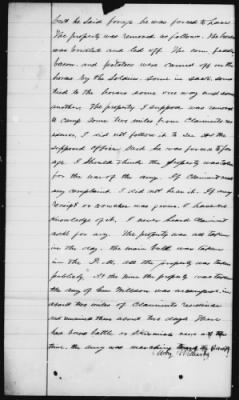 but he said forage he was forced to have
The property was removed as follows. The horse
was bridled and led off. The corn fodder
bacon and potatoes was carried off on the
horses by the soldiers some in sacks some
tied to the horses some one way and some
another. The property I suppose was removed
to camp some two miles from Claimants re
sidence, I did not follow it to see it the
supposed officer said he was forced to for
age. I should think the property was taken
for the use of the army. If Claimant made
any complaint I did not hear it. If any
receipt or voucher was given I have no
knowledge of it, I never heard claimant
ask for any. The property was all taken
in the day. the main bulk was taken
in the all the property was taken
publicly. At the time the property was taken
the army of Gen was encamped in
about two miles of Claimants residence
and remained there about two days. There
had been no battle or skirmish near at the
time. the army was marching